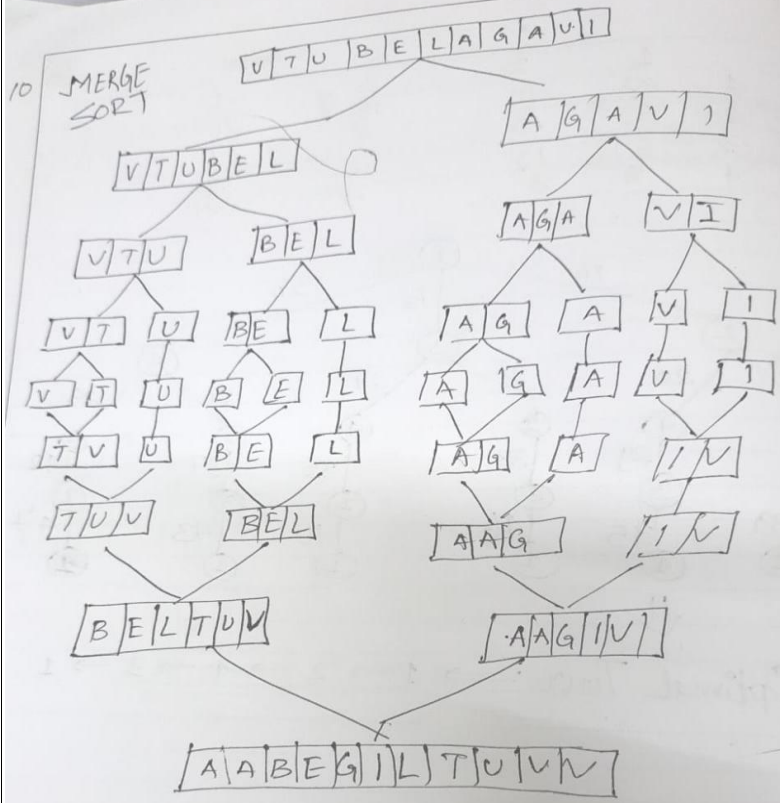 10 MERGE SORT
V T U B E L A G A V I
V T U B E L
A G A V I
V T U
B E L
A G A
V I
V T
U
B E
L
A G
A
V
I
V
T
U
B
E
L
A
G
A
V
I
T V
U
B E
L
A G
A
I V
T U V
B E L
A A G
I V
B E L T U V
A A G I V
A A B E G I L T U V V